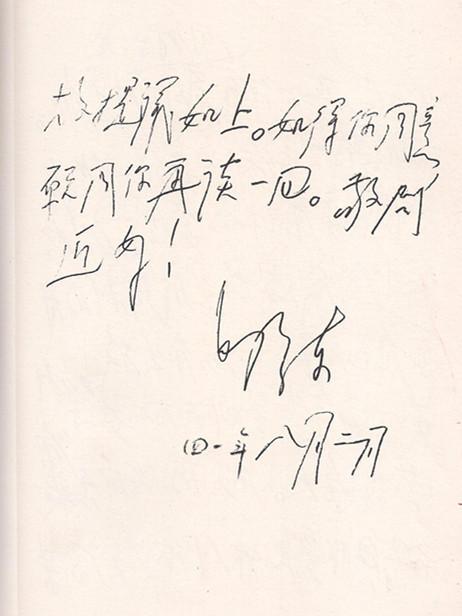 故提議如上。如得你同意
願同你再谈一回。敬问
近好！
毛泽东
四一年八月二日